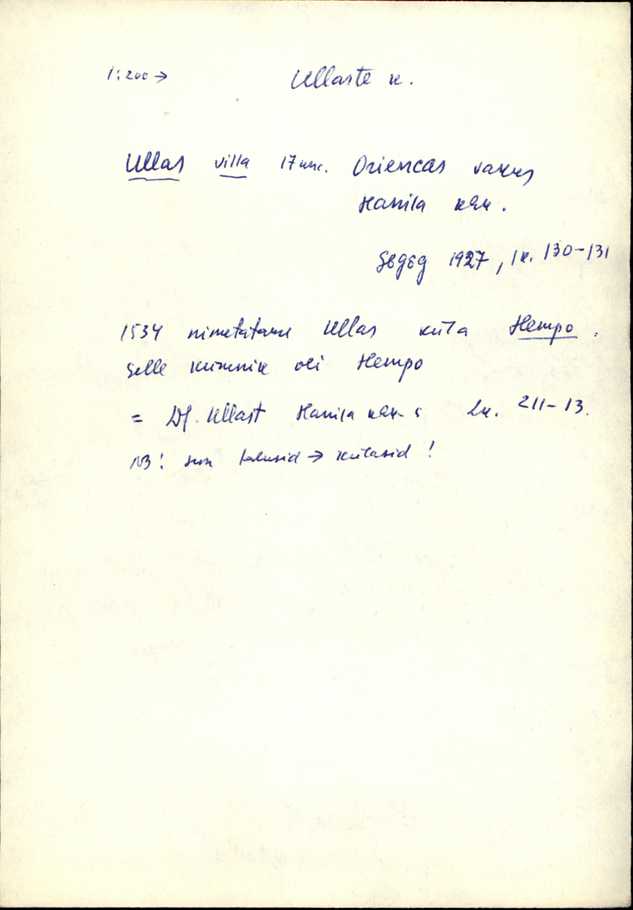 1:200 → Ullaste k.
Ullas villa 17 Oriencas vakus
Hanila khk.
SbGEG 1927, lk. 130-131
1534 nimetatakse Ullas küla Hempo.
Selle kümnik oli Hempo
= Df. Ullast Hanila khk-s lk. 211-13.
NB! talusid → külasid!